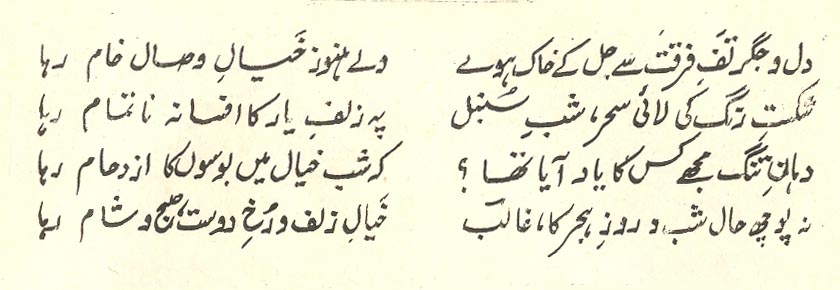 دل و جگر تفِ فرقت سے جل کے خاک ہوے ولے ہنوز خَیالِ وصال خام رہا
شکستِ رنگ کی لائی سحر، شبِ سُنبل پہ زلفِ یار کا افسانہ ناتمام رہا
دہانِ تنگ مجھے کس کا یاد آیا تھا ؟ کہ شب خیال میں بوسوں کا ازدحام رہا
نہ پوچھ حال شب و روزِ ہجر کا، غالبؔ خَیالِ زلف و رُخِ دوست، صبح و شام رہا